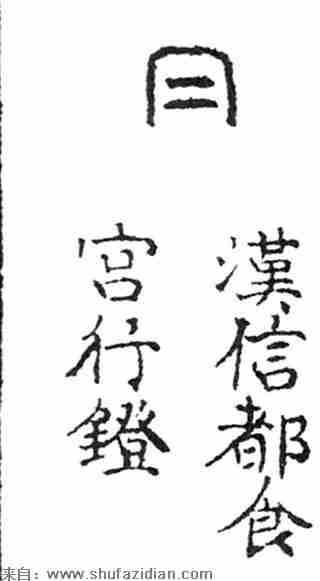 冃
漢信都食
宮行鐙
来自：www.shufazidian.com